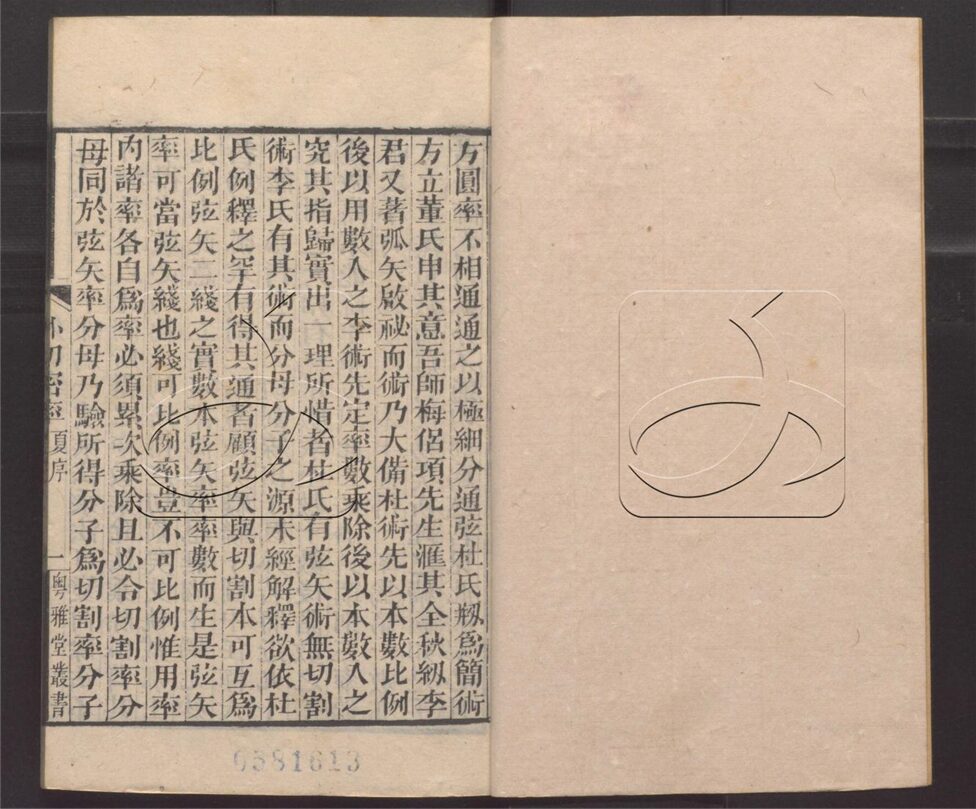 方圓率不相通通之以極細分通弦杜氏剏爲簡術
方立董氏申其意吾師梅侶項先生滙其全秋紉李
君又著弧矢啟祕而術乃大備杜術先以本數比例
後以用數入之李術先定率數乘除後以本數入之
究其指歸實出一理所惜者杜氏有弦矢術無切割
術李氏有其術而分母分子之源未經解釋欲依杜
氏例釋之罕有得其通者顧弦矢與切割本可互爲
比例弦矢二綫之實數本弦矢率率數而生是弦矢
率可當弦矢綫也綫可比例率豈不可比例惟用率
內諸率各自爲率必須累次乘除且必令切割率分
母同於弦矢率分母乃驗所得分子爲切割率分子
外切密率 夏序 一 粤雅堂叢書
0581613